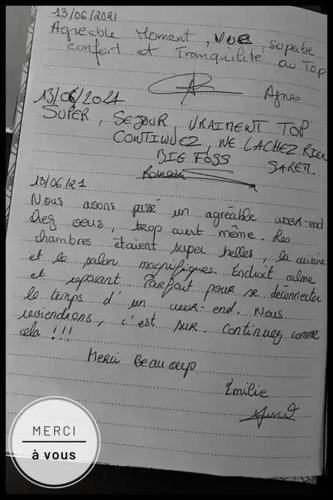 13/06/2021
Agréable Moment, vue, superbe
confort et Tranquilité au Top
Agnes
13/06/2021
SUPER, SEJOUR VRAIMENT TOP
CONTINUEZ, NE LACHEZ RIEN
BIG FOSS
Romain
13/06/21
Nous avons passé un agréable week-end
chez vous, trop court même. Les
chambres étaient super belles, la cuisine
et le salon magnifiques. Endroit calme
et reposant. Parfait pour se déconnecter
le temps d'un week-end. Nous
reviendrons, c'est sur. Continuez comme
cela !!!
Merci Beaucoup
Emilie
MERCI
à vous